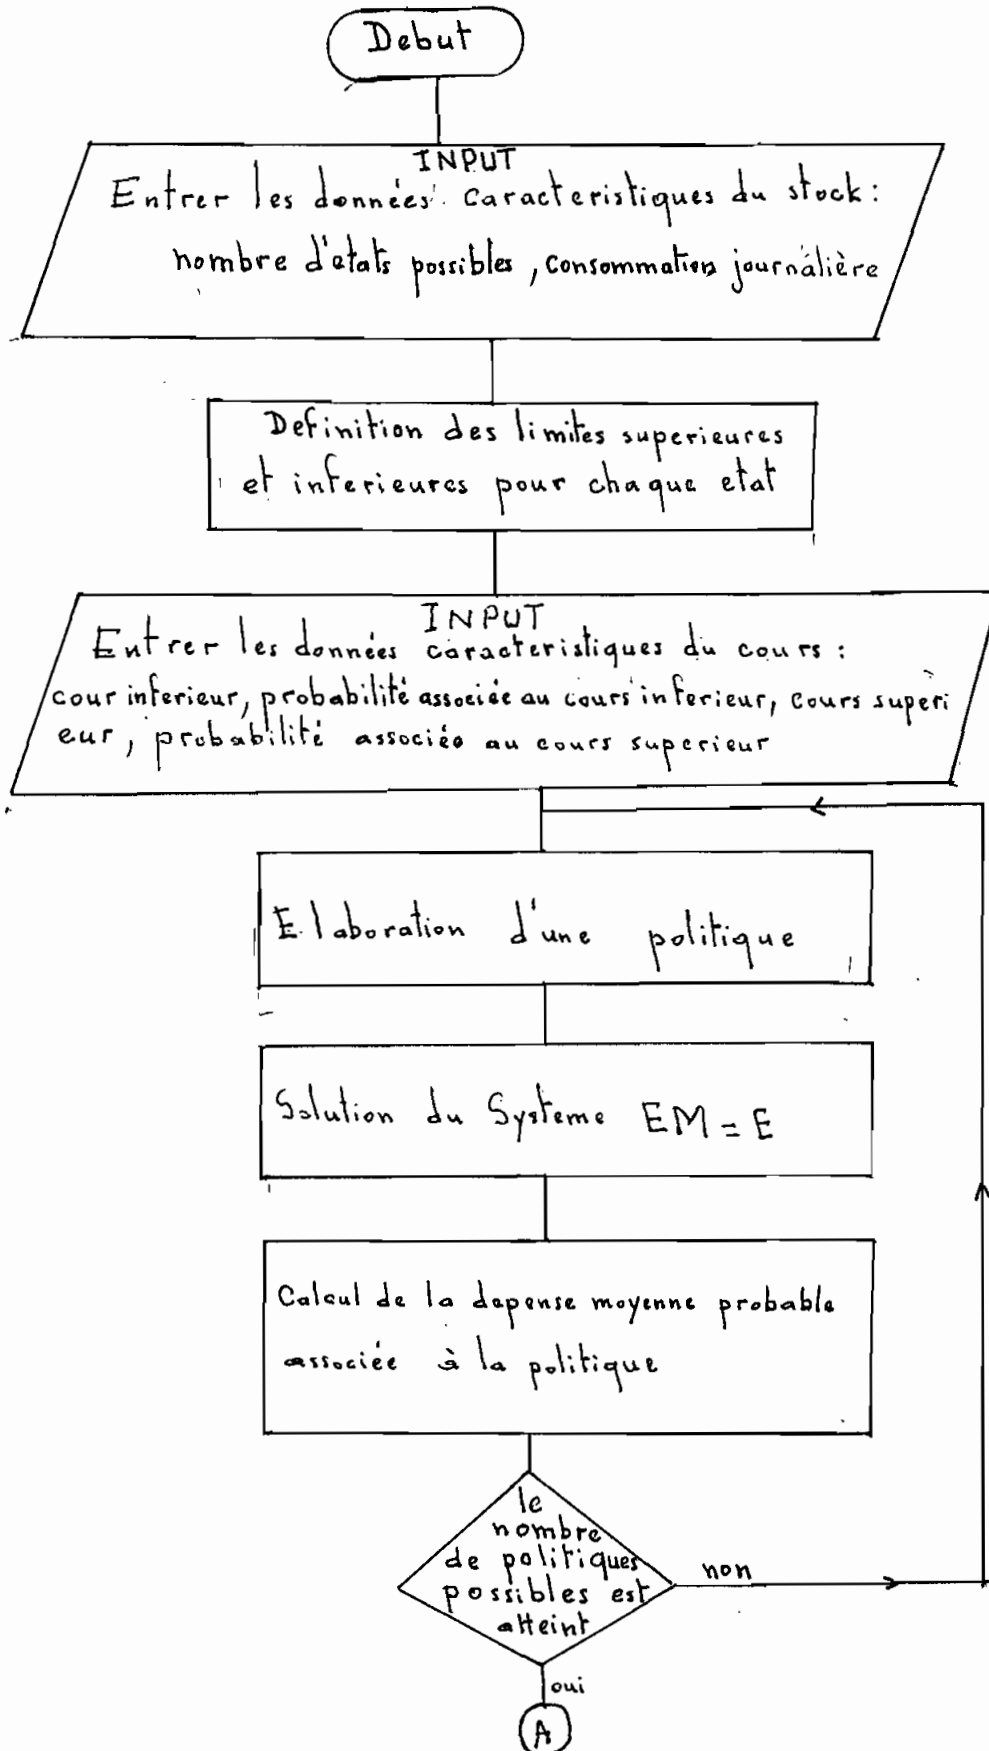 Debut
INPUT
Entrer les données caracteristiques du stock :
nombre d'etats possibles, consommation journálière
Definition des limites superieures
et inferieures pour chaque etat
INPUT
Entrer les données caracteristiques du cours :
cour inferieur, probabilité associée au cours inferieur, cours superi
eur, probabilité associée au cours superieur
Elaboration d'une politique
Solution du Systeme EM = E
Calcul de la depense moyenne probable
associée à la politique
le
nombre
de politiques
possibles est
atteint
non
oui
A